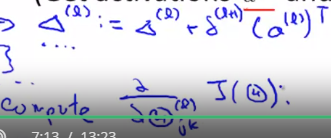 ⇒ Δ^(l) := Δ^(l) + δ^(l+1) (a^(l))^T
....
}
compute ∂/∂Θ^(l)_jk J(Θ):
7:13 / 13:23